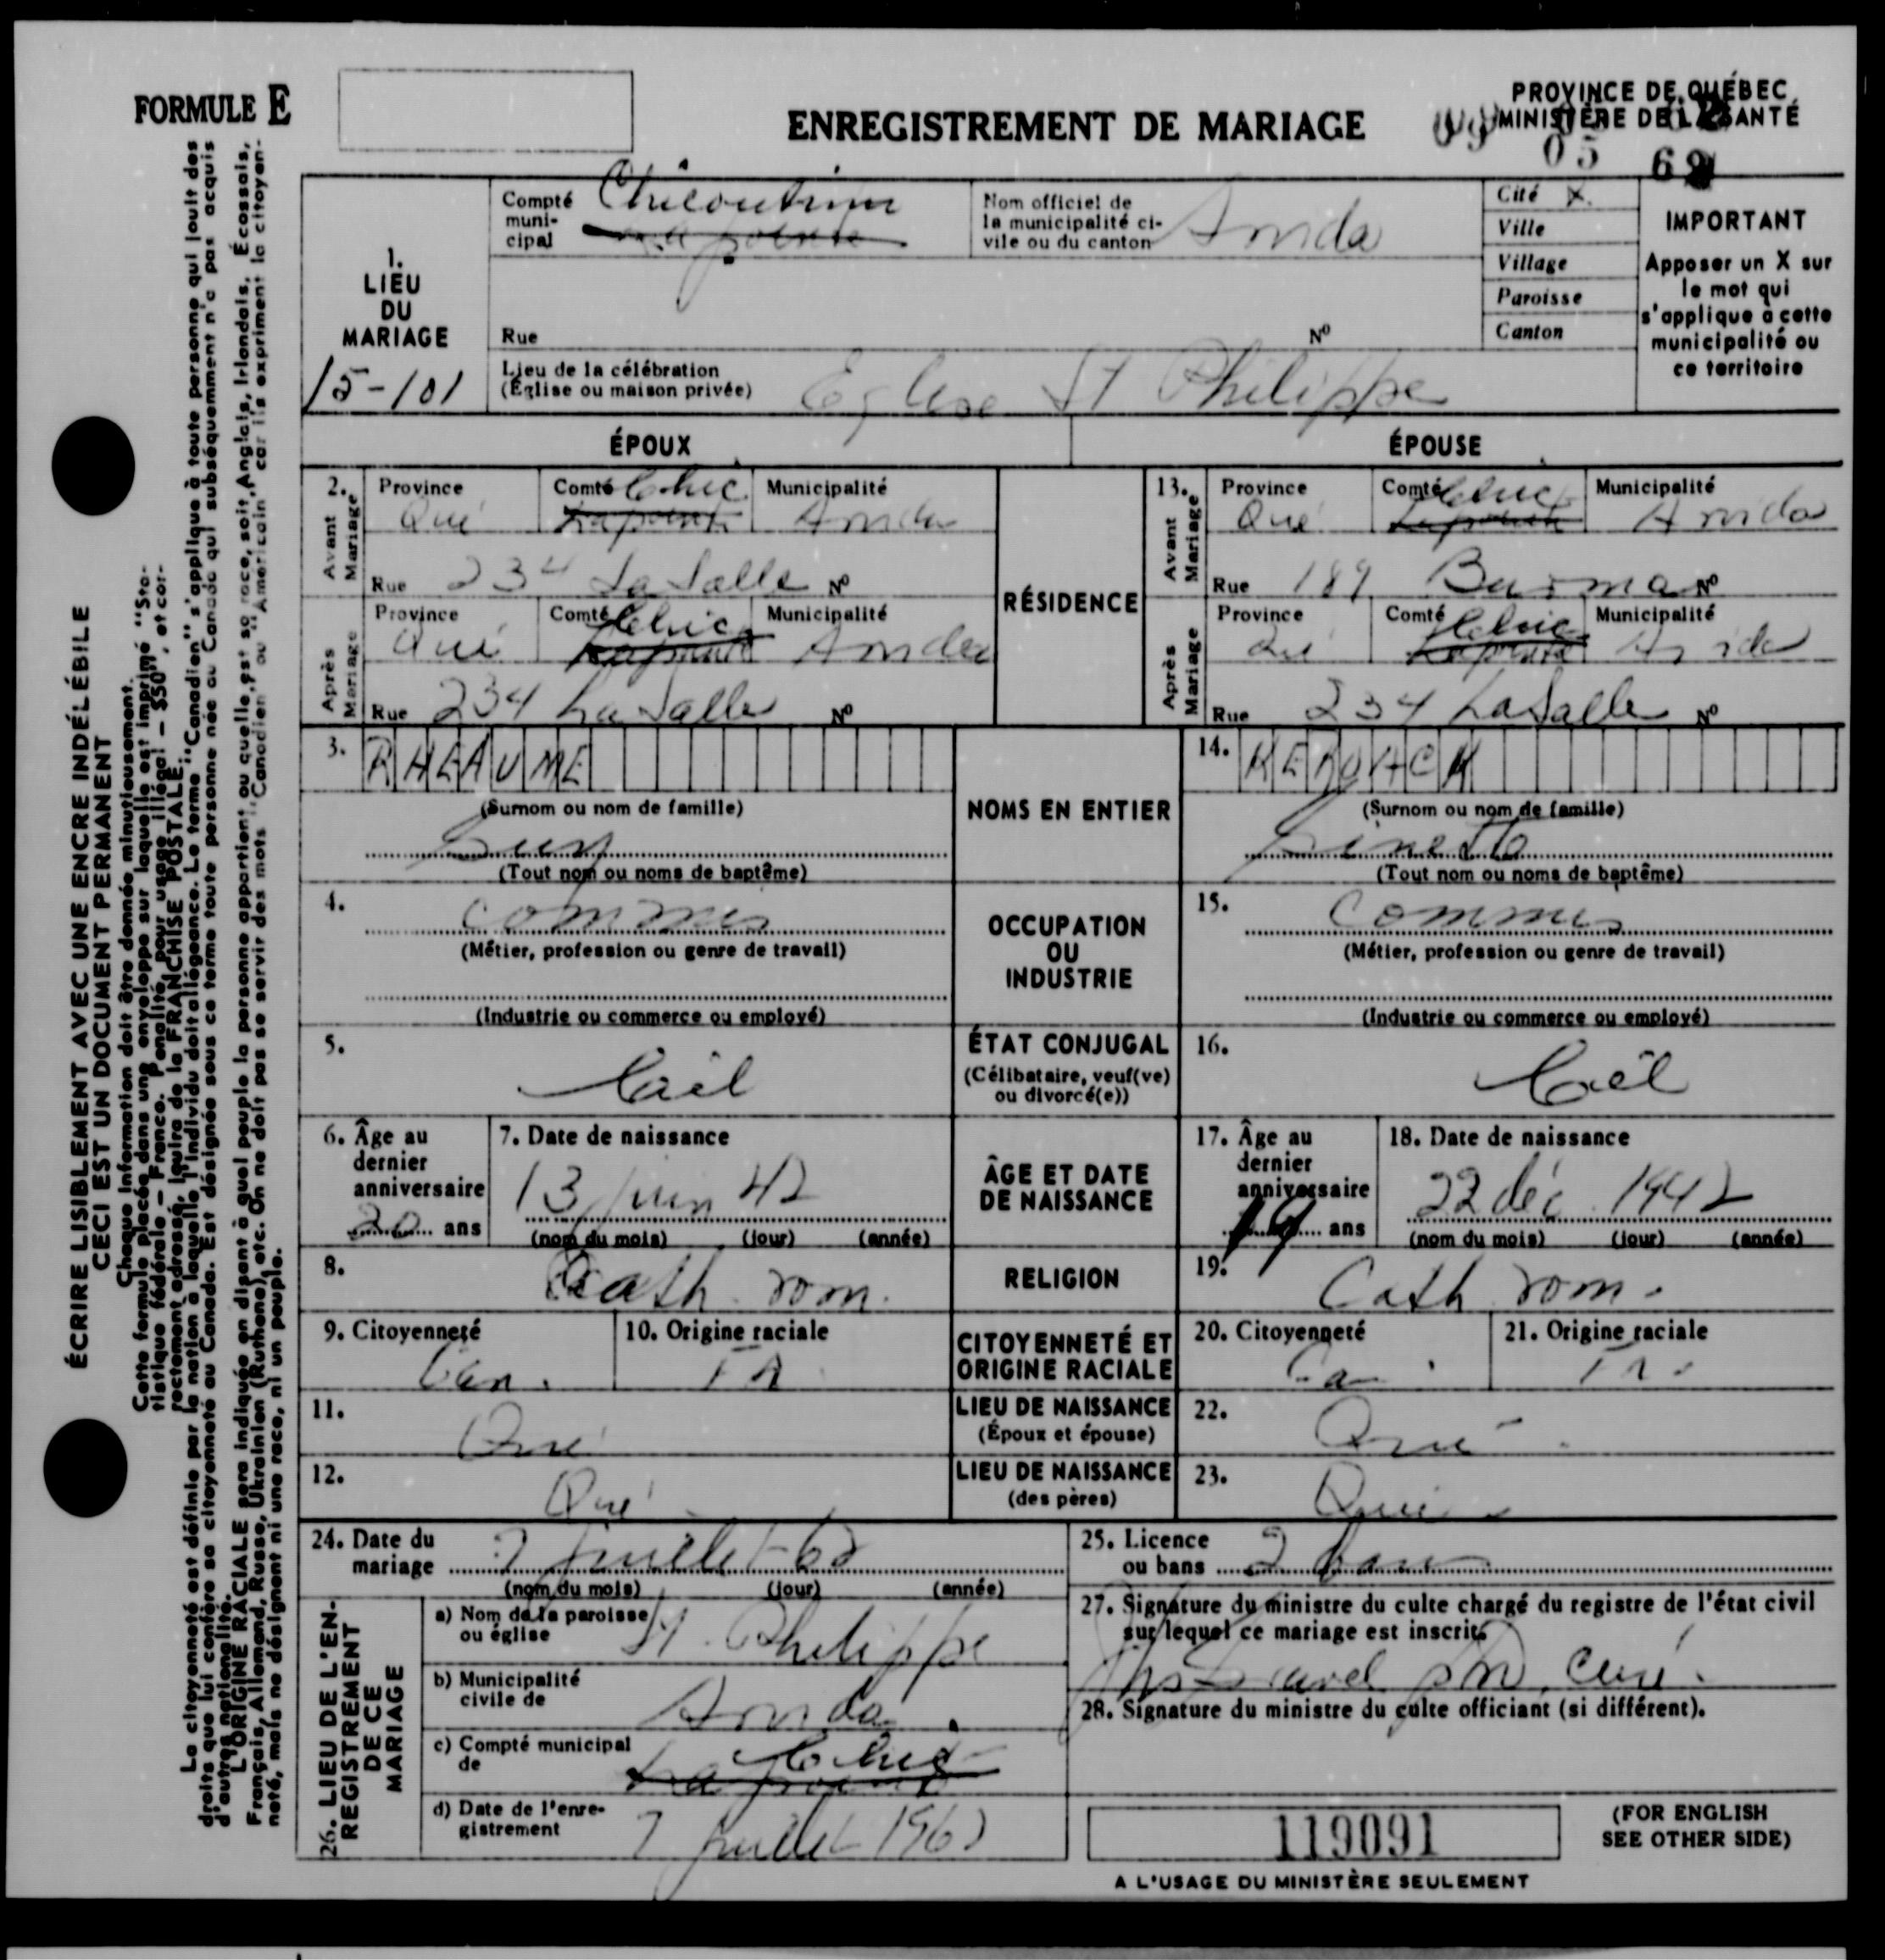 FORMULE E
ENREGISTREMENT DE MARIAGE
PROVINCE DE QUÉBEC
MINISTÈRE DE LA SANTÉ
05 62
ÉCRIRE LISIBLEMENT AVEC UNE ENCRE INDÉLÉBILE
CECI EST UN DOCUMENT PERMANENT
Chaque information doit être donnée minutieusement.
Cette formule placée dans une enveloppe sur laquelle est imprimé "Sta-
tistique fédérale – Franco. Pénalité pour usage illégal – $50", et cor-
rectement adressé, jouira de la FRANCHISE POSTALE.
La citoyenneté est définie par la nation à laquelle l'individu doit allégeance. Le terme "Canadien" s'applique à toute personne qui jouit des
droits que lui confère sa citoyenneté au Canada. Est désignée sous ce terme toute personne née au Canada qui subséquemment n'a pas acquis
d'autres nationalité.
L'ORIGINE RACIALE sera indiquée en disant à quel peuple la personne appartient ou quelle est sa race, soit Anglais, Irlandais, Écossais,
Français, Allemand, Russe, Ukrainien (Ruthene), etc. On ne doit pas se servir des mots "Canadien" ou "Américain" car ils expriment la citoyen-
neté, mais ne désignent ni une race, ni un peuple.
1.
LIEU
DU
MARIAGE
15-101
Compté
muni-
cipal
Chicoutimi
Lapointe
Nom officiel de
la municipalité ci-
vile ou du canton
Arvida
Cité X
Ville
Village
Paroisse
Canton
IMPORTANT
Apposer un X sur
le mot qui
s'applique à cette
municipalité ou
ce territoire
Rue Nº
Lieu de la célébration
(Église ou maison privée)
Eglise St Philippe
ÉPOUX ÉPOUSE
RÉSIDENCE
2. Avant Mariage
Province Comté Chic Municipalité
Qué Lapointe Arvida
Rue 234 LaSalle Nº
Après Mariage
Province Comté Chic Municipalité
Qué Lapointe Arvida
Rue 234 LaSalle Nº
13. Avant Mariage
Province Comté Chic Municipalité
Qué Lapointe Arvida
Rue 189 Burma Nº
Après Mariage
Province Comté Chic Municipalité
Qué Lapointe Arvida
Rue 234 LaSalle Nº
3. RHEAUME
(Surnom ou nom de famille)
Guy
(Tout nom ou noms de baptême)
NOMS EN ENTIER
14. KEROACK
(Surnom ou nom de famille)
Ginette
(Tout nom ou noms de baptême)
4. commis
(Métier, profession ou genre de travail)
(Industrie ou commerce ou employé)
OCCUPATION
OU
INDUSTRIE
15. Commis
(Métier, profession ou genre de travail)
(Industrie ou commerce ou employé)
5. Cél
ÉTAT CONJUGAL
(Célibataire, veuf(ve)
ou divorcé(e))
16. Cél
6. Âge au
dernier
anniversaire
20 ans
7. Date de naissance
13 juin 42
(nom du mois) (jour) (année)
ÂGE ET DATE
DE NAISSANCE
17. Âge au
dernier
anniversaire
19 ans
18. Date de naissance
22 déc 1942
(nom du mois) (jour) (année)
8. Cath rom.
RELIGION
19. Cath rom.
9. Citoyenneté
Can.
10. Origine raciale
Fr
CITOYENNETÉ ET
ORIGINE RACIALE
20. Citoyenneté
Ca
21. Origine raciale
Fr.
11. Qué
LIEU DE NAISSANCE
(Époux et épouse)
22. Qué
12. Qué
LIEU DE NAISSANCE
(des pères)
23. Qué
24. Date du
mariage 7 juillet-62
(nom du mois) (jour) (année)
25. Licence
ou bans 2 bans
26. LIEU DE L'EN-
REGISTREMENT
DE CE
MARIAGE
a) Nom de la paroisse
ou église
St. Philippe
b) Municipalité
civile de
Arvida
c) Compté municipal
de
Chic
Lapointe
d) Date de l'enre-
gistrement
7 juillet 1962
27. Signature du ministre du culte chargé du registre de l'état civil
sur lequel ce mariage est inscrit.
curé.
28. Signature du ministre du culte officiant (si différent).
119091
A L'USAGE DU MINISTÈRE SEULEMENT
(FOR ENGLISH
SEE OTHER SIDE)